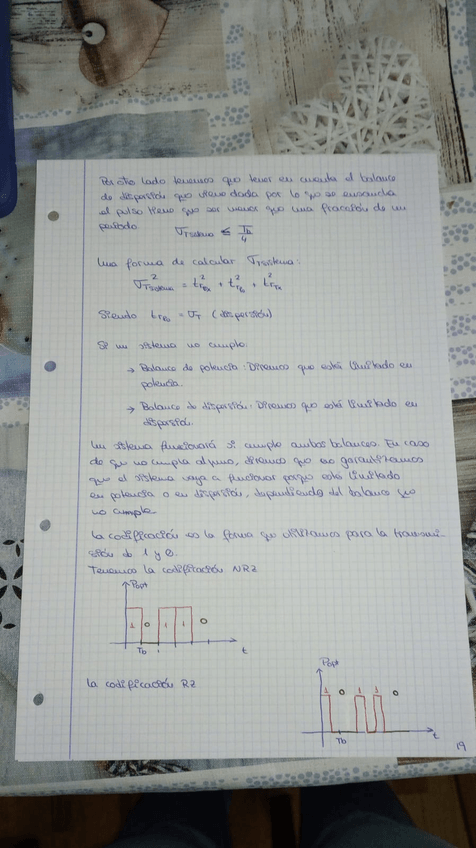 Por otro lado tenemos que tener en cuenta el balance
de dispersión que viene dada por lo que se ensancha
el pulso tiene que ser menor que una fracción de un
período. σTsistema ≤ Tb/4
Una forma de calcular σTsistema:
σ²Tsistema = t²rRx + t²rFo + t²rTx
Siendo trFo = σT (dispersión)
Si un sistema no cumple:
→ Balance de potencia: Diremos que está limitado en
potencia.
→ Balance de dispersión: Diremos que está limitado en
dispersión.
Un sistema funcionará si cumple ambos balances. En caso
de que no cumpla alguno, diremos que no garantizamos
que el sistema vaya a funcionar porque está limitado
en potencia o en dispersión, dependiendo del balance que
no cumple.
La codificación es la forma que utilizamos para la transmi-
sión de 1 y 0.
Tenemos la codificación NRZ
Popt
1 0 1 1 0
Tb t
La codificación RZ
Popt
1 0 1 1 0
Tb t
19